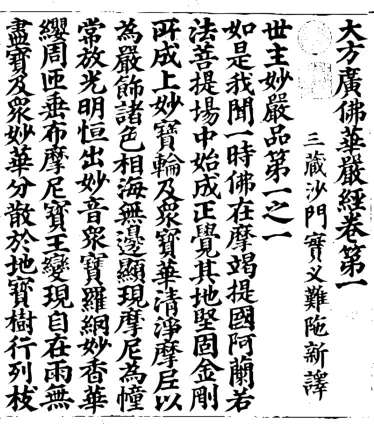 大方廣佛華嚴經卷第一
三藏沙門實叉難陁新譯
世主妙嚴品第一之一
如是我聞一時佛在摩竭提國阿蘭若
法菩提場中始成正覺其地堅固金剛
所成上妙寶輪及衆寶華清淨摩尼以
為嚴飾諸色相海無邊顯現摩尼為幢
常放光明恒出妙音衆寶羅網妙香華
纓周匝垂布摩尼寶王變現自在雨無
盡寶及衆妙華分散於地寶樹行列枝